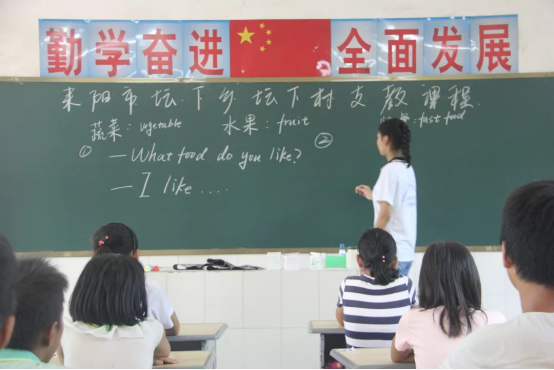 勤学奋进 全面发展
耒阳市坛下乡坛下村支教课程.
蔬菜: vegetable 水果: fruit : fast food
① — What food do you like? ②
— I like ....